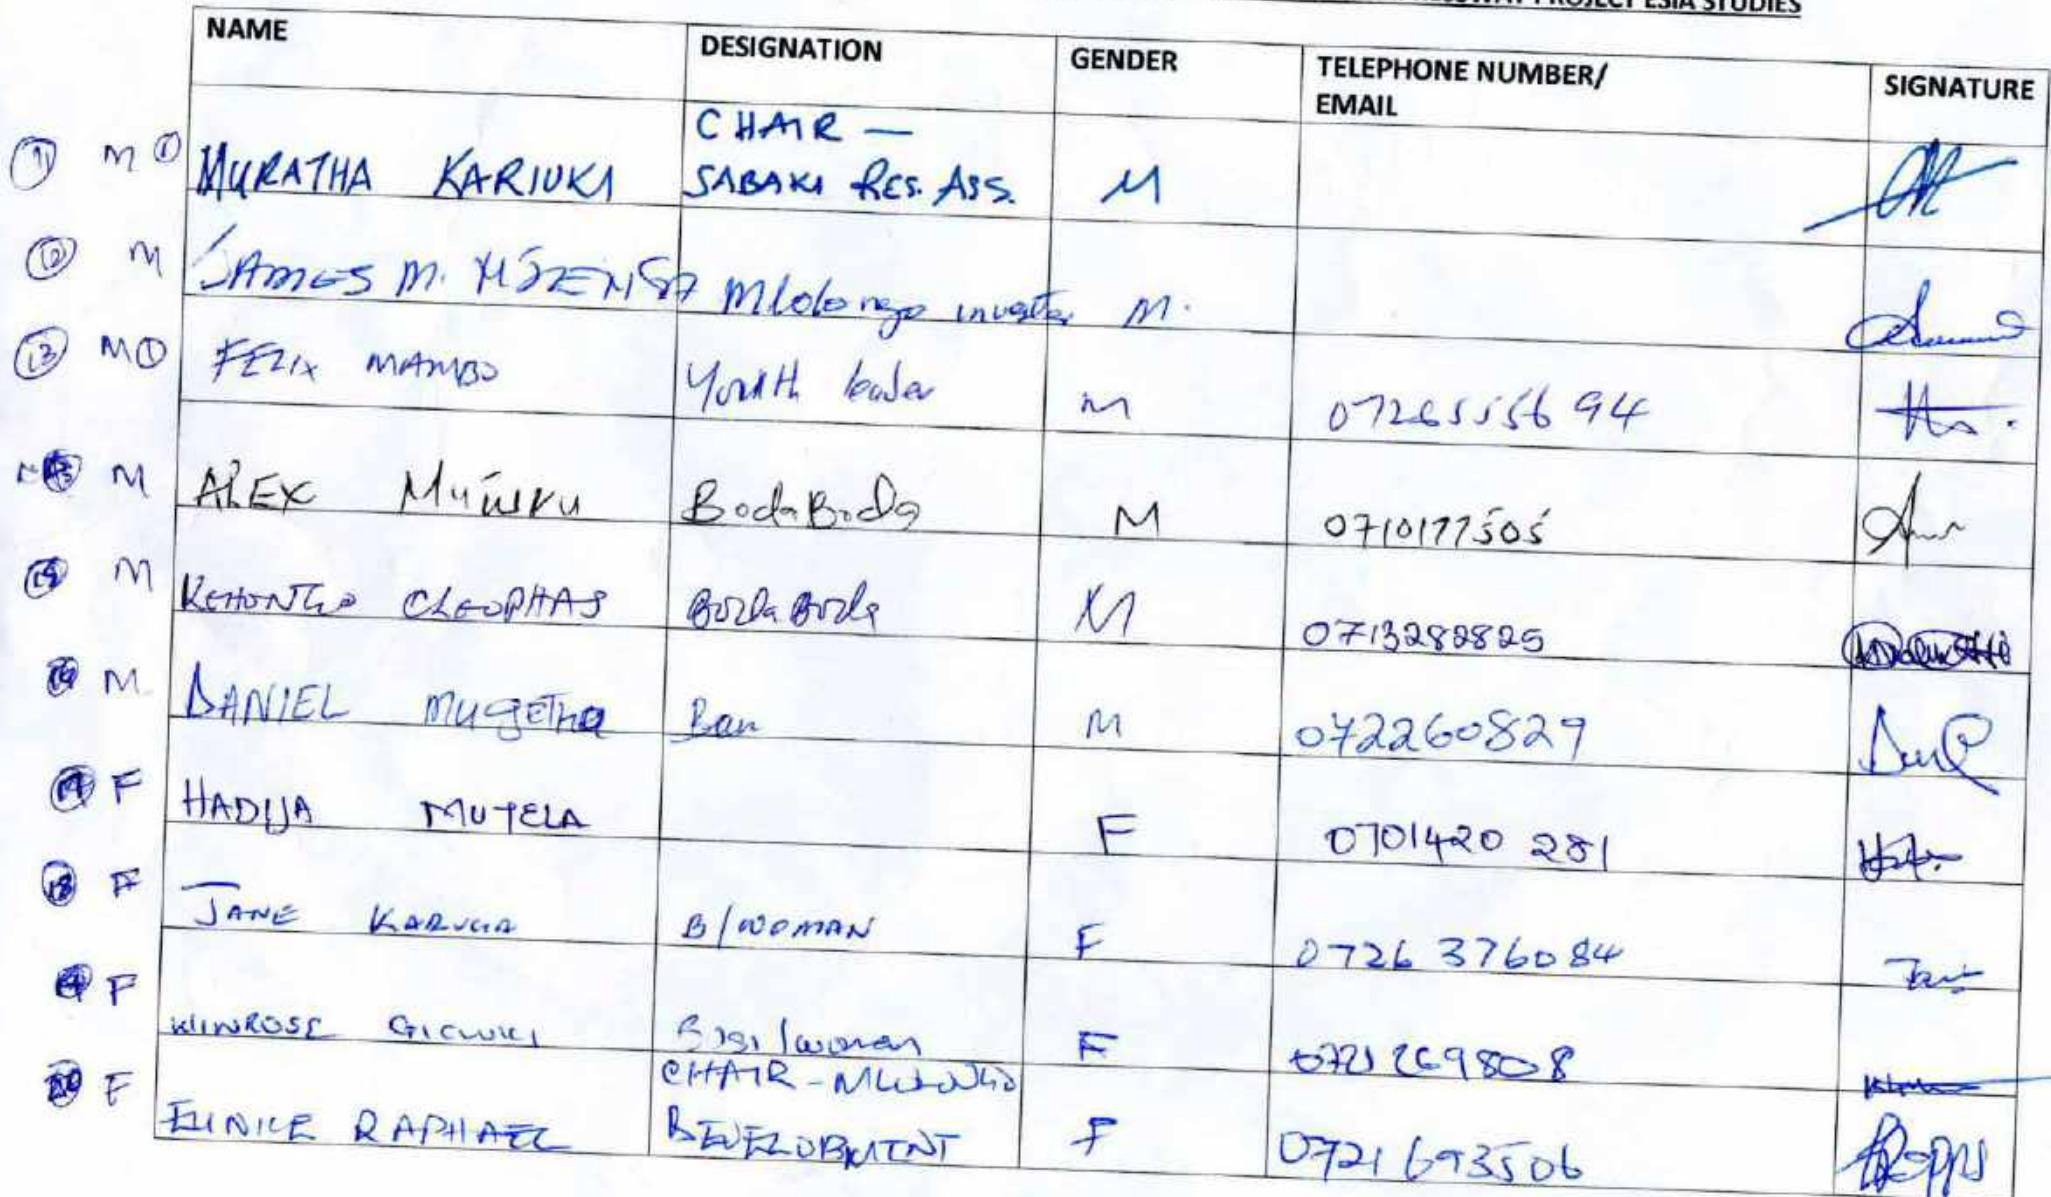 PROJECT ESIA STUDIES
NAME DESIGNATION GENDER TELEPHONE NUMBER/ EMAIL SIGNATURE
11 M ① MURATHA KARIUKI CHAIR — SABAKI RES. ASS. M
12 M JAMES M. Mlolongo M.
13 M ① FELIX MAMBO Youth leader M 0726555694
M ALEX BodaBoda M 0710177505
15 M CLEOPHAS BodaBoda M 0713282825
16 M DANIEL MUGETHA M 072260829
17 F HADIJA MUTELA F 0701420 281
18 F JANE KARUGA B/WOMAN F 0726 376084
19 F WINROSE GICHUKI Busi/woman F 0721269808
20 F EUNICE RAPHAEL CHAIR - MLOLONGO DEVELOPMENT F 0721693506